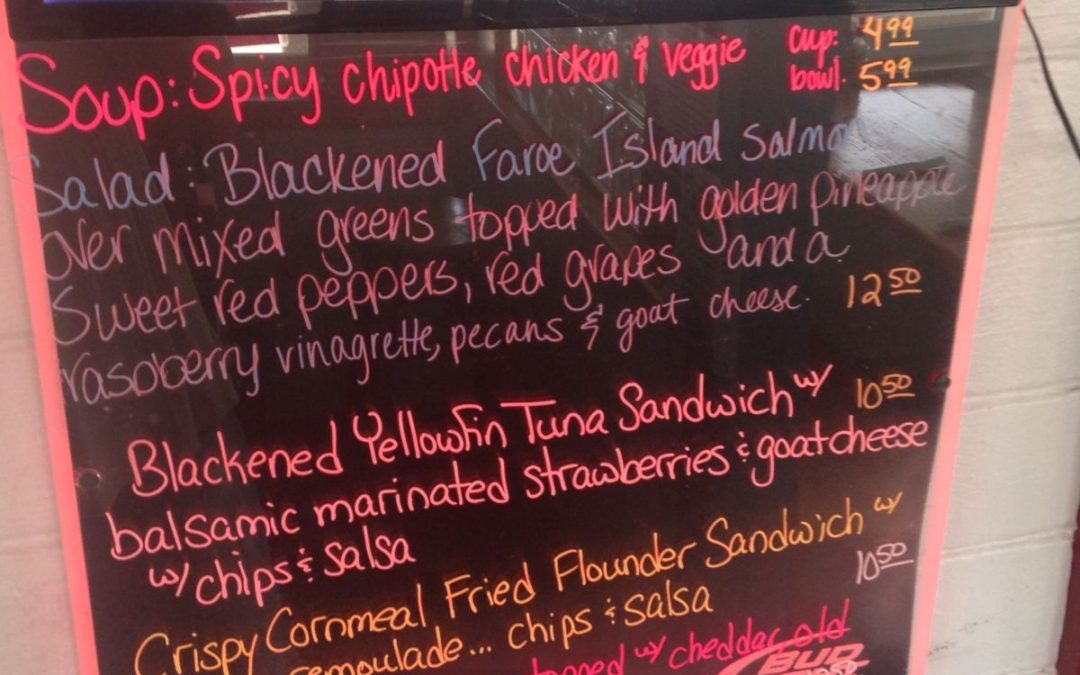 Soup: Spicy chipotle chicken & veggie cup: 4.99
bowl. 5.99
Salad: Blackened Faroe Island Salmon
over mixed greens topped with golden pineapple
Sweet red peppers, red grapes and a
raspberry vinagrette, pecans & goat cheese. 12.50
Blackened Yellowfin Tuna Sandwich w/ 10.50
balsamic marinated strawberries & goat cheese
w/ chips & salsa
Crispy Cornmeal Fried Flounder Sandwich w/
remoulade... chips & salsa 10.50
topped w/ cheddar, old
BUD